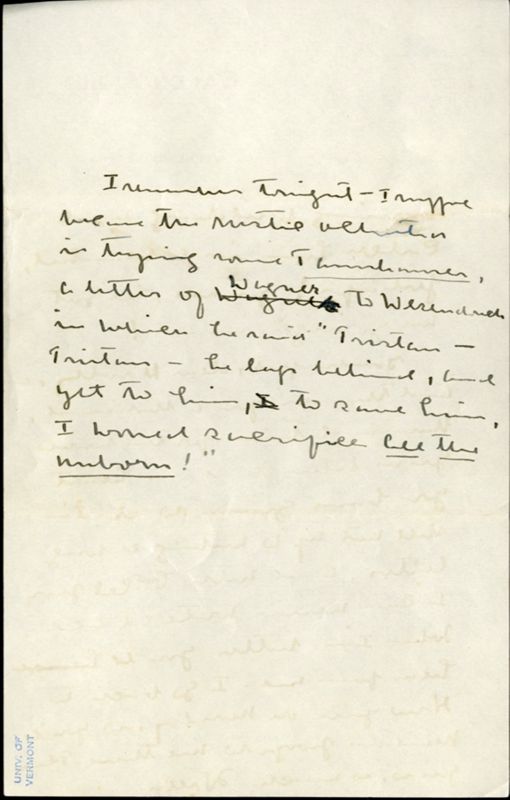 I remember tonight – I suppose
because the rustic orchestra
is trying some Tannhauser,
a letter of Wagner to Wesendonck
in which he said "Tristan –
Tristan – he lags behind, and
yet to him, to save him,
I would sacrifice all the
unborn!"
UNIV. OF
VERMONT